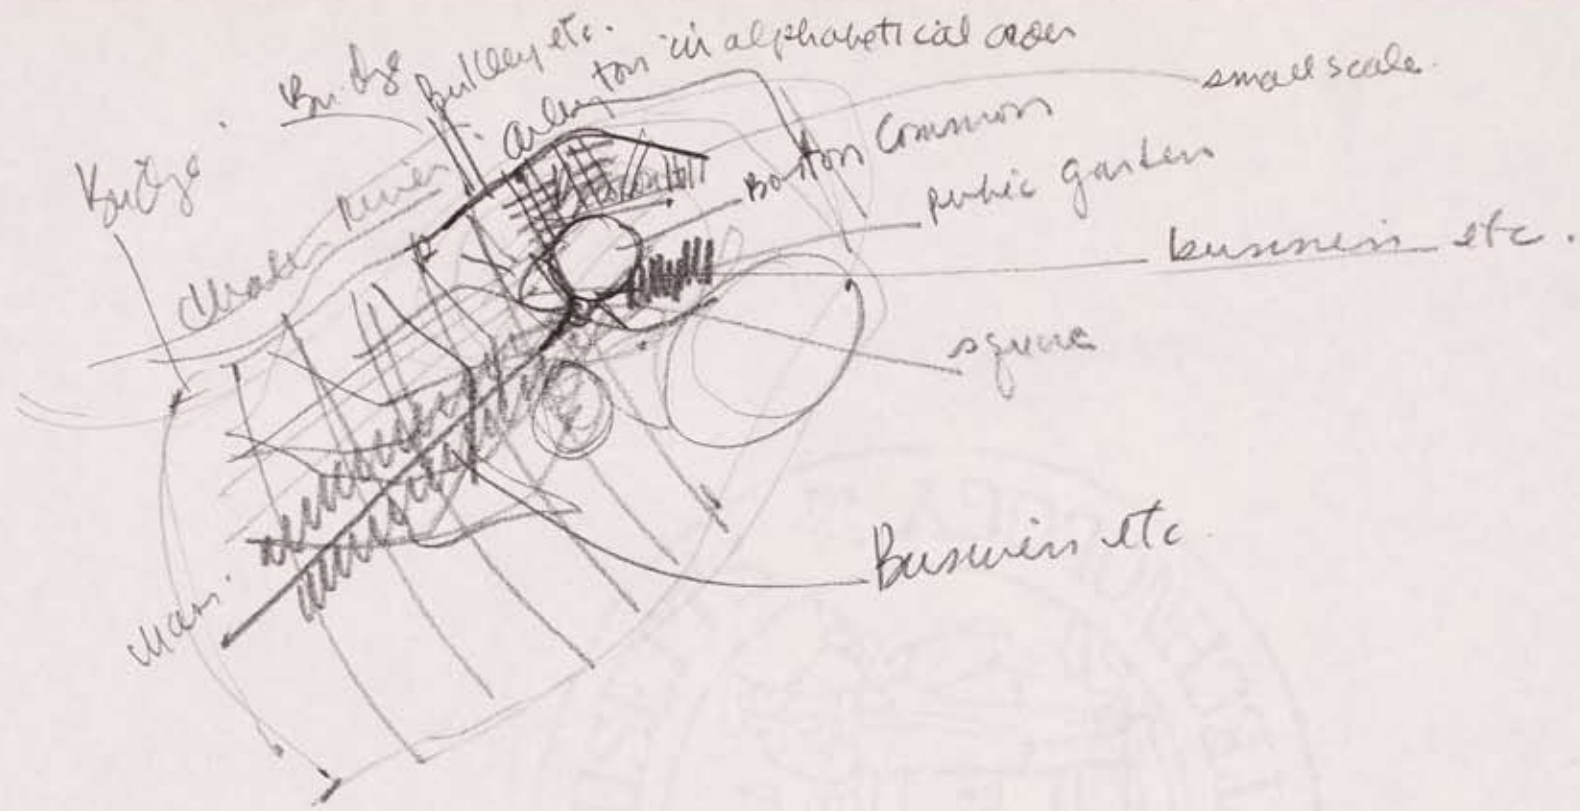 Bridge
Berkley etc.
Arlington in alphabetical order
small scale.
Bridge
Charles River
Boston Common
public garden
business etc.
square
Business etc.
Main